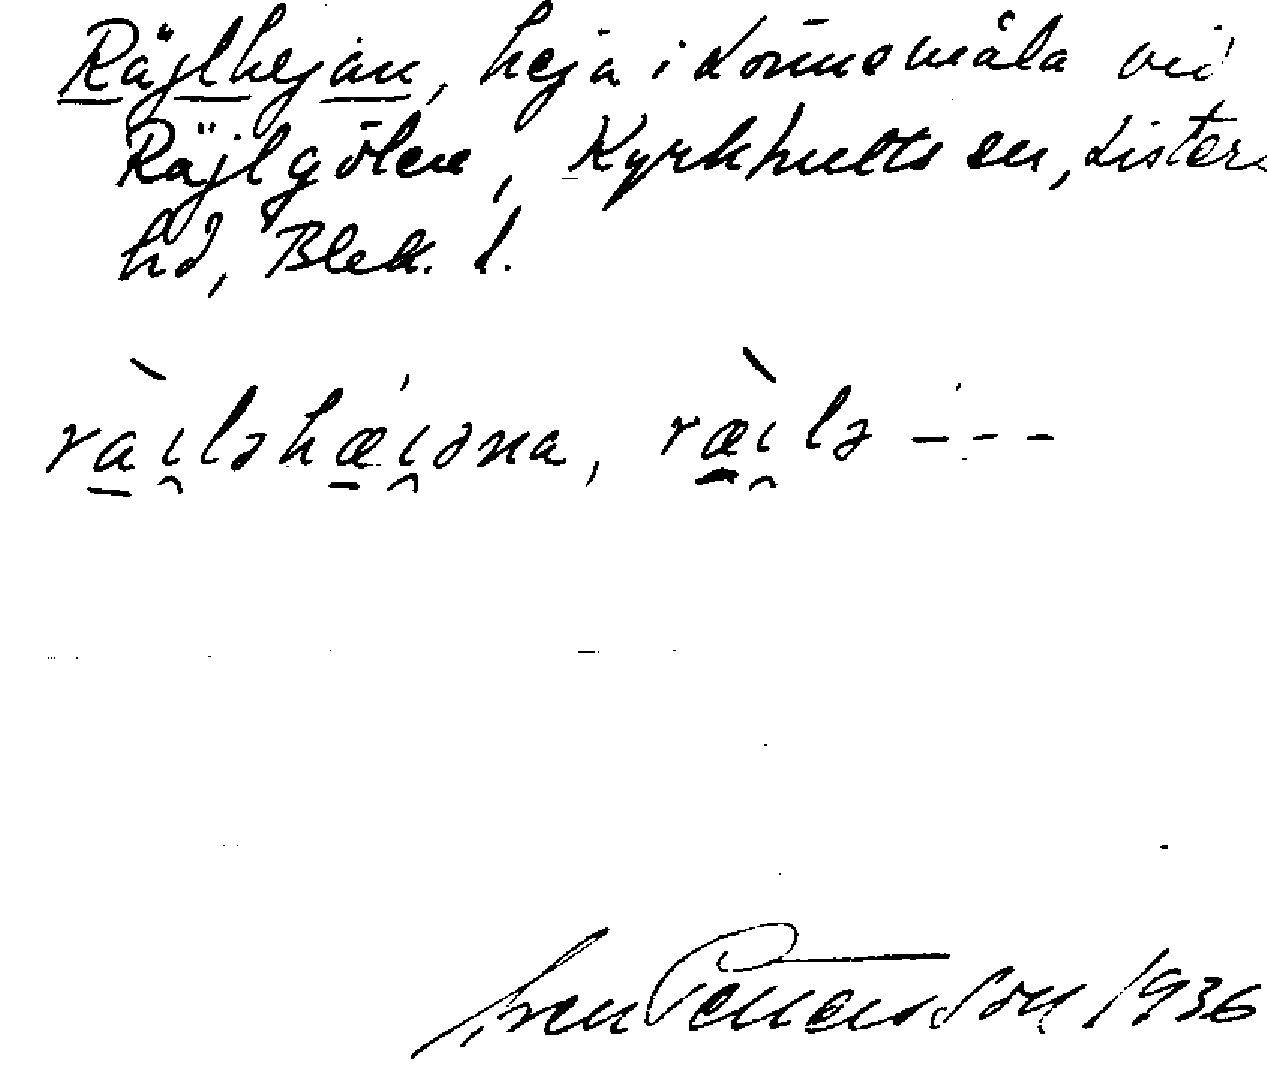 Räjlhejan, heja i Lönnsmåla vid
Räjlgölen, Kyrkhults sn, Listers
hd, Blek. l.
ràı̯ləhǽı̯əna, ræ̀ı̯lə ---
Sven Pettersson 1936